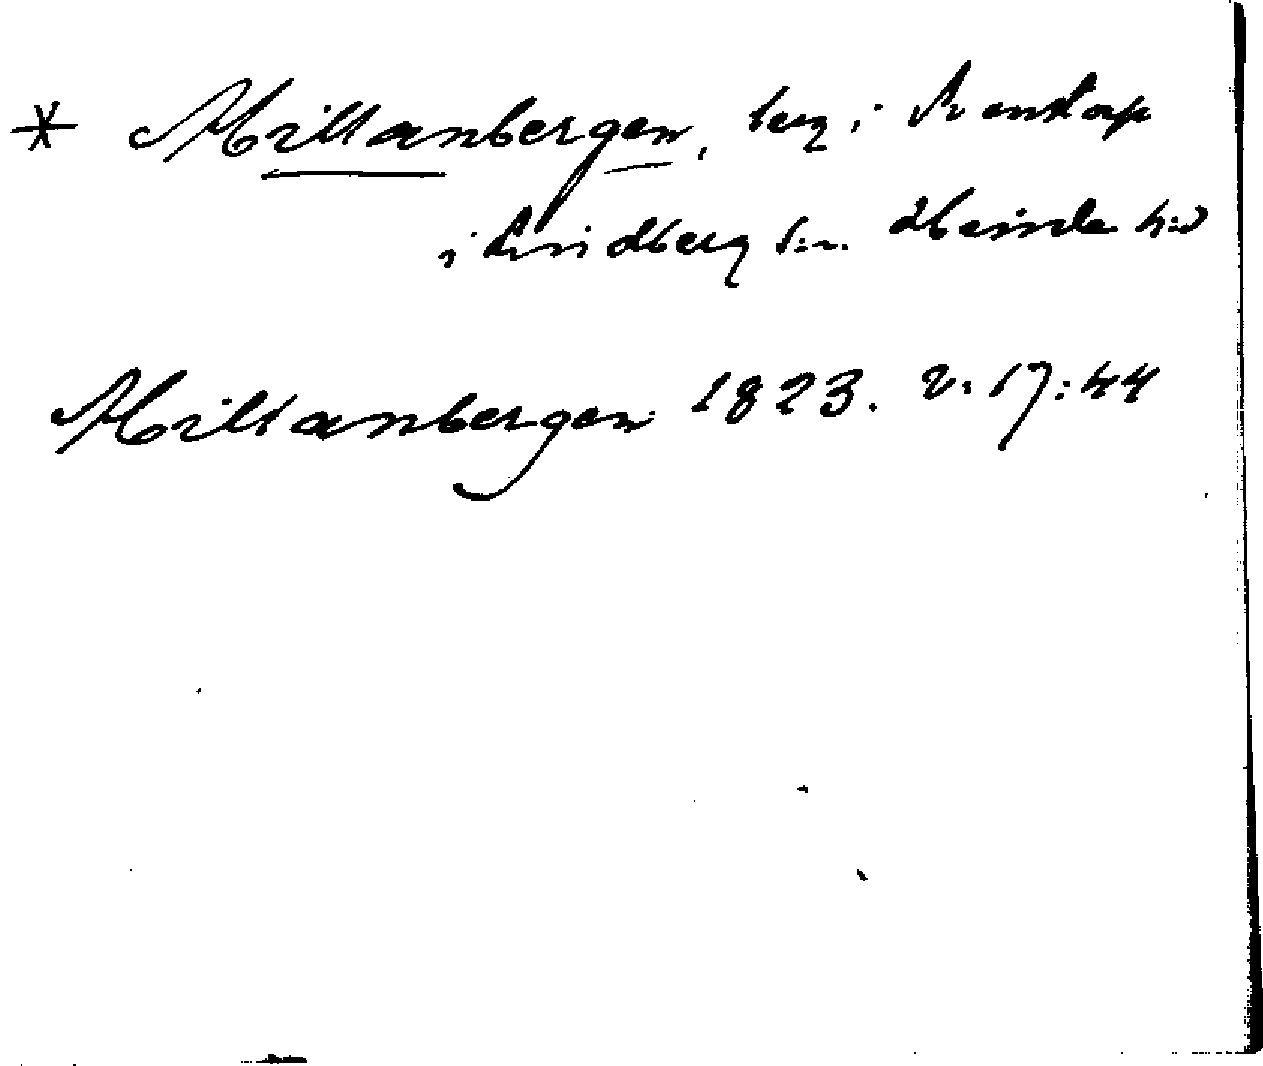 * Millanbergen, berg i
i Lindberg sn. Himle hd
Millanbergen 1823. v. 17:44